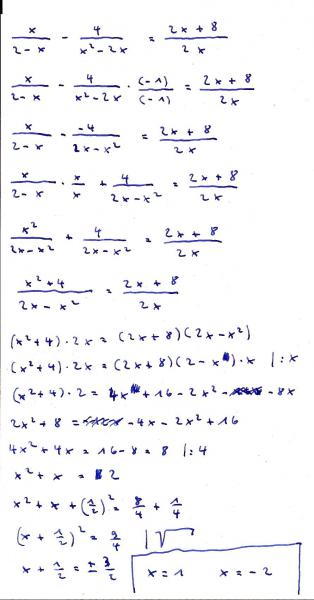 x/(2-x) - 4/(x²-2x) = (2x+8)/(2x)
x/(2-x) - 4/(x²-2x) · (-1)/(-1) = (2x+8)/(2x)
x/(2-x) - (-4)/(2x-x²) = (2x+8)/(2x)
x/(2-x) · x/x + 4/(2x-x²) = (2x+8)/(2x)
x²/(2x-x²) + 4/(2x-x²) = (2x+8)/(2x)
(x²+4)/(2x-x²) = (2x+8)/(2x)
(x²+4)·2x = (2x+8)(2x-x²)
(x²+4)·2x = (2x+8)(2-x)·x |:x
(x²+4)·2 = 4x+16-2x²-8x
2x²+8 = -4x-2x²+16
4x²+4x = 16-8 = 8 |:4
x²+x = 2
x²+x+(1/2)² = 8/4 + 1/4
(x+1/2)² = 9/4 |√
x+1/2 = ±3/2
x=1 x=-2